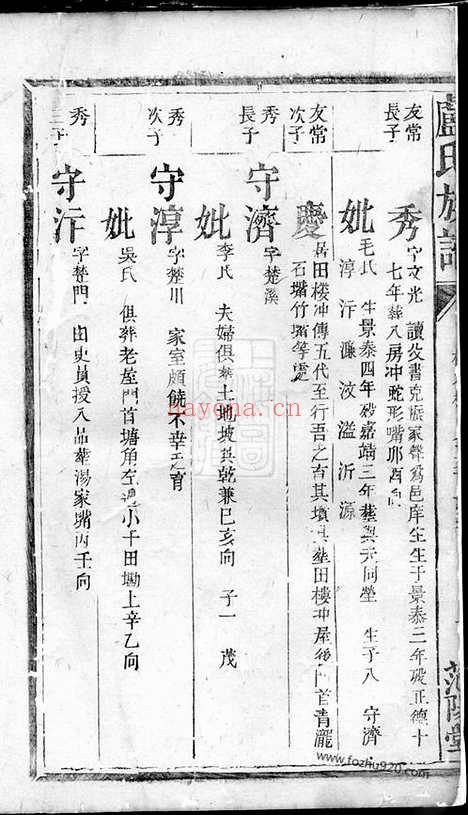 盧氏族譜
范陽堂
友常
長子
秀
字文光 讀父書克振家聲爲邑庠生生于景泰三年歿正德十
七年葬八房冲蛇形嘴邜酉向
妣
毛氏 生景泰四年歿嘉靖三年塟與夫同塋 生子八 守濟
淳 汘 濂 汶 溢 沂 源
友常
次子
慶
居田楼冲傳五代至行吾乏育其墳具塟田楼冲屋後 首青瀧
石嘴竹 等處
秀
長子
守濟
字楚溪
妣
李氏 夫婦俱塟土地坡 乾兼巳亥向 子一 茂
秀
次子
守淳
字楚川 家室頗饒不幸乏育
妣
吳氏 俱葬老屋門首塘角左邊小千田墈上辛乙向
秀
三子
守汘
字楚門 由吏員授八品塟湯家嘴丙壬向
nayena.com
www.fozhu920.com